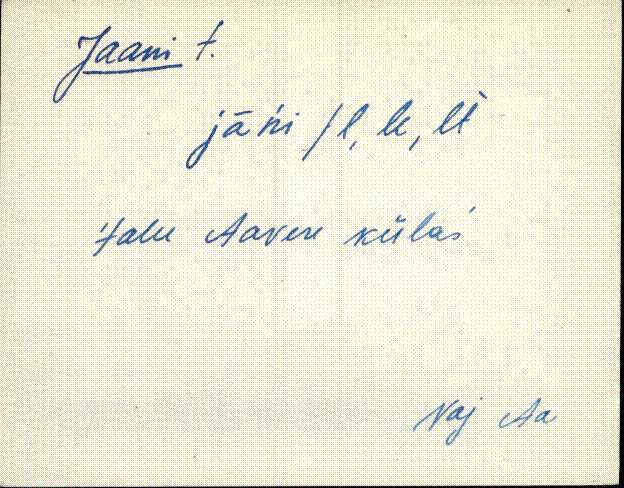 Jaani t.
jāńi /l, le, lt̀
talu Aavere külaś
Vaj Aa